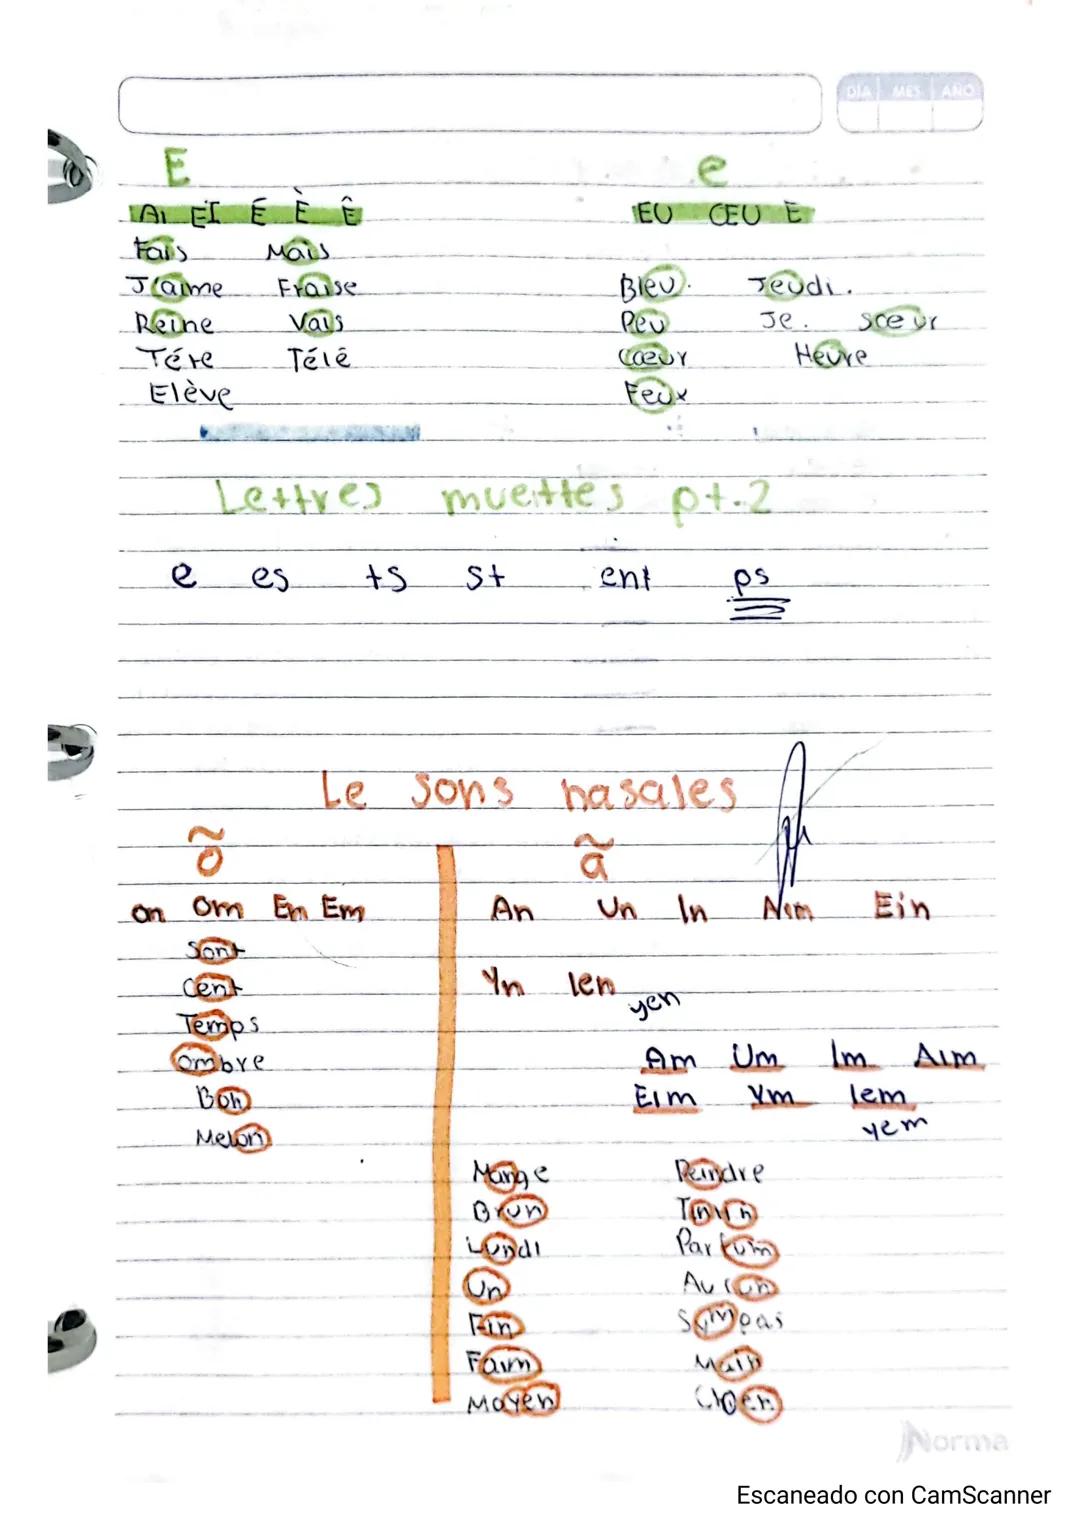 DÍA MES AÑO
E e
AI EI É È Ê EU ŒU E
Fais Mais
J'aime Fraise Bleu. Jeudi.
Reine Vais Peu Je. Sœur
Tére Télé Cœur Heure
Elève Feux
Lettres muettes pt.2
e es ts st ent ps
Le sons nasales
õ ã
on om En Em An Un In Aim Ein
Sont
Cent Yn Ien yen
Temps
Ombre Am Um Im Aim
Bon Eim Ym Iem
Melon yem
Mange Peindre
Brun
Lundi Parfum
Un Aucun
Fin Sympas
Faim Main
Moyen
Norma
Escaneado con CamScanner